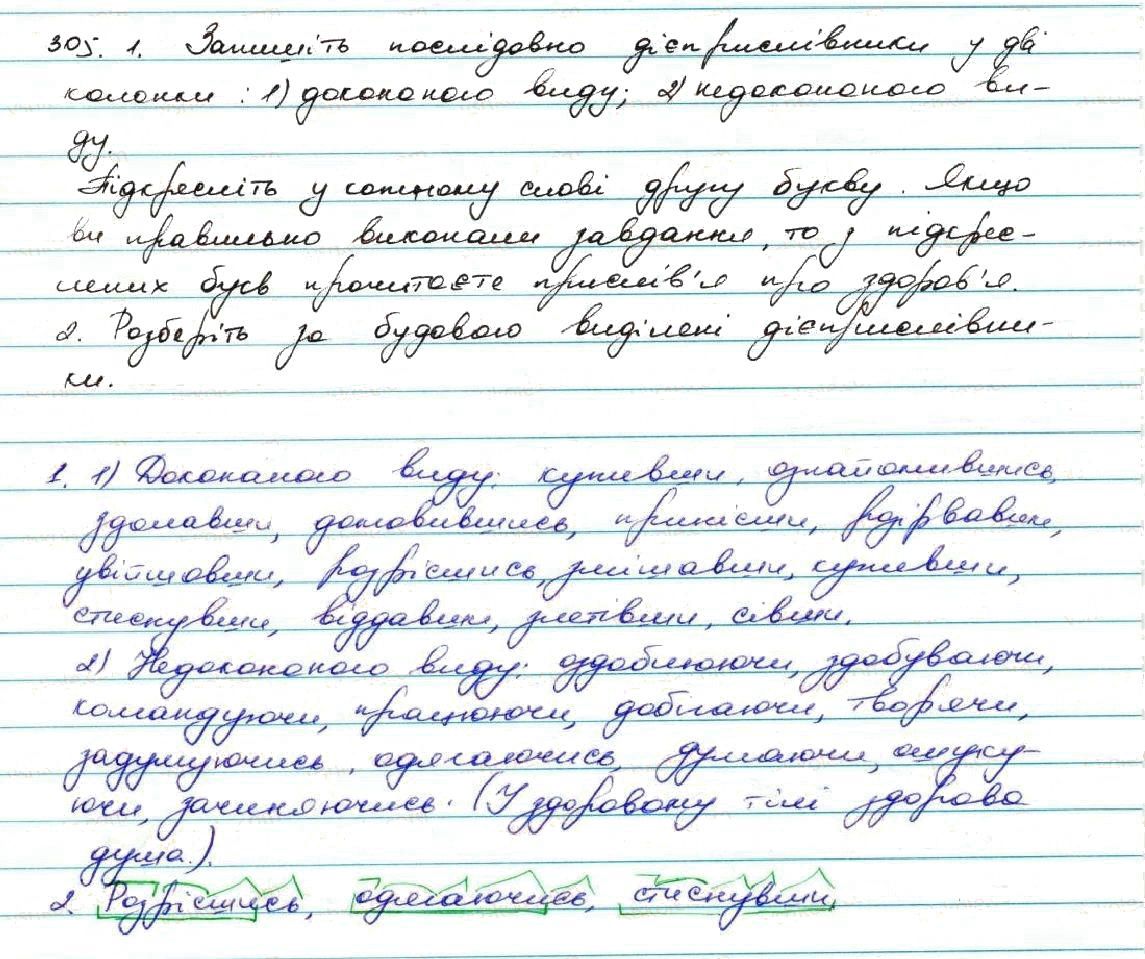 305. 1. Запишіть послідовно дієприслівники у дві
колонки : 1) доконаного виду; 2) недоконаного ви-
ду.
Підкресліть у кожному слові другу букву. Якщо
ви правильно виконали завдання, то з підкрес-
лених букв прочитаєте прислів'я про здоров'я.
2. Розберіть за будовою виділені дієприслівни-
ки.
1. 1) Доконаного виду: купивши, ознайомившись,
здолавши, домовившись, принісши, відірвавши,
увійшовши, розрісшись, змішавши, купивши,
стиснувши, віддавши, злетівши, сівши.
2) Недоконаного виду: оздоблюючи, здобуваючи,
командуючи, працюючи, добігаючи, творячи,
задумуючись, одягаючись, думаючи, ошуку-
ючи, зачиняючись. (У здоровому тілі здорова
думка.).
2. Розрісшись, одягаючись, стиснувши,